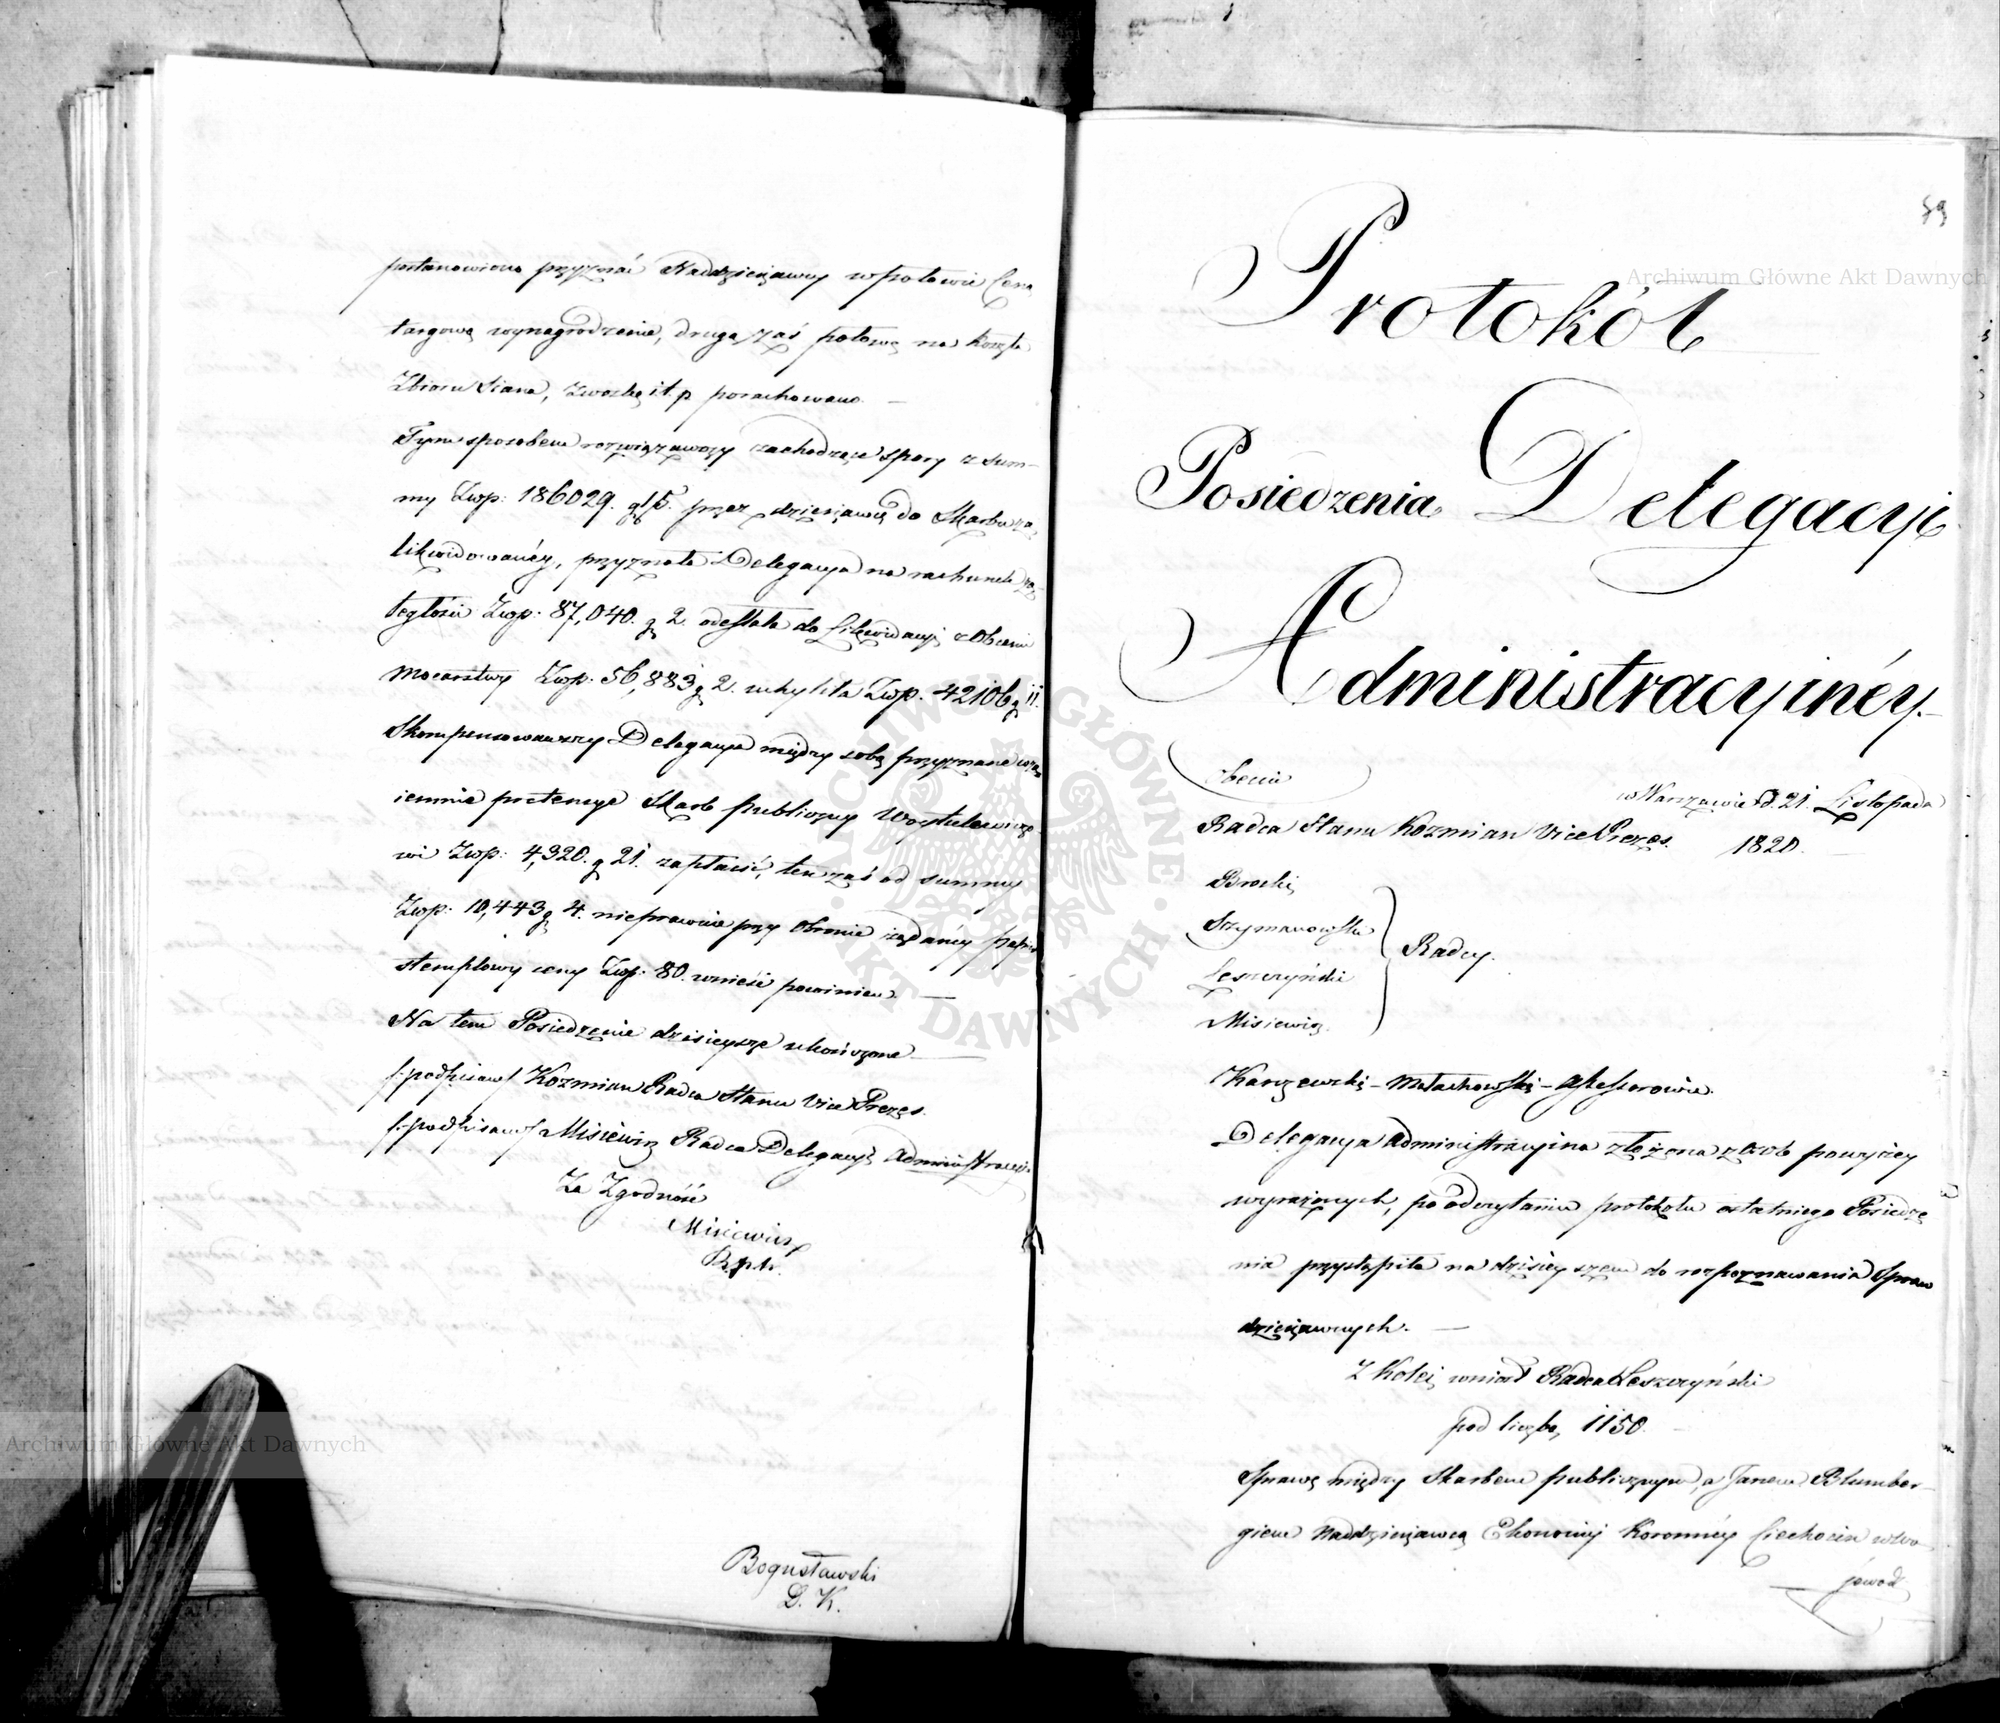 postanowiono przyznać Naddzierżawcy w połowie Ceną
targową wynagrodzenie, drugą zaś połowę na koszta
Zbioru Siana, zwózkę i t. p. porachowano. —
Tym sposobem rozwiązawszy zachodzące spory z sum-
my Złp: 186029. g 15. przez dzierżawcę do Skarbu za
likwidowanéy, przyznała Delegacya na rachunek za
ległości Złp: 87,040. g 2. odesłała do Likwidacyi z Obcemi
Mocarstwy Złp: 56,883 g 2. uchyliła Złp. 42106 g 11.
Skompensowawszy Delegacya między sobą przyznane wza
iemnie pretensye Skarb publiczny Woytulewiczo-
wi Złp: 4,320. g 21. zapłacić, ten zaś od summy
Złp: 10,443 g 4. nieprawnie przy Obronie żądanéy papier
stemplowy ceny Złp: 80. wnieść powinien. —
Na tem Posiedzenie dzisieysze ukończone —
/:podpisany/ Kozmian Radca Stanu Vice Prezes.
/:podpisany/ Misiewicz Radca Delegacyi Administracyi:
Za Zgodność
Misiewicz
Bogusławski
D. K.
59
Protokół
Posiedzenia Delegacyi
Administracyinéy.
Obecni
w Warszawie d. 21. Listopada
Radca Stanu Kozmian Vice Prezes.
1820. —
Brocki
Szymanowski
Leszczyński
Radcy.
Misiewicz
Karczewski – Małachowski – Assessorowie.
Delegacya Administracyina złożona z Osob powyżey
wyrażonych, po odczytaniu protokołu ostatniego Posiedze
nia przystąpiła na dzisieyszem do rozpoznawania Spraw
dzierżawnych. —
Z Kolei wniosł Radca Leszczyński
pod liczbą 1150. —
Sprawę między Skarbem publicznym, a Janem Blumber-
giem Naddzierżawcą Ekonomij Koronnéy Ciechocin w Wo
jewod